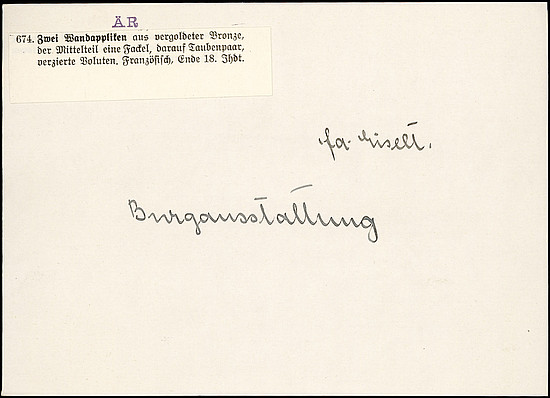 ÄR
674. Zwei Wandappliken aus vergoldeter Bronze,
der Mittelteil eine Fackel, darauf Taubenpaar,
verzierte Voluten. Französisch, Ende 18. Jhdt.
fa. Miselt.
Burgausstattung